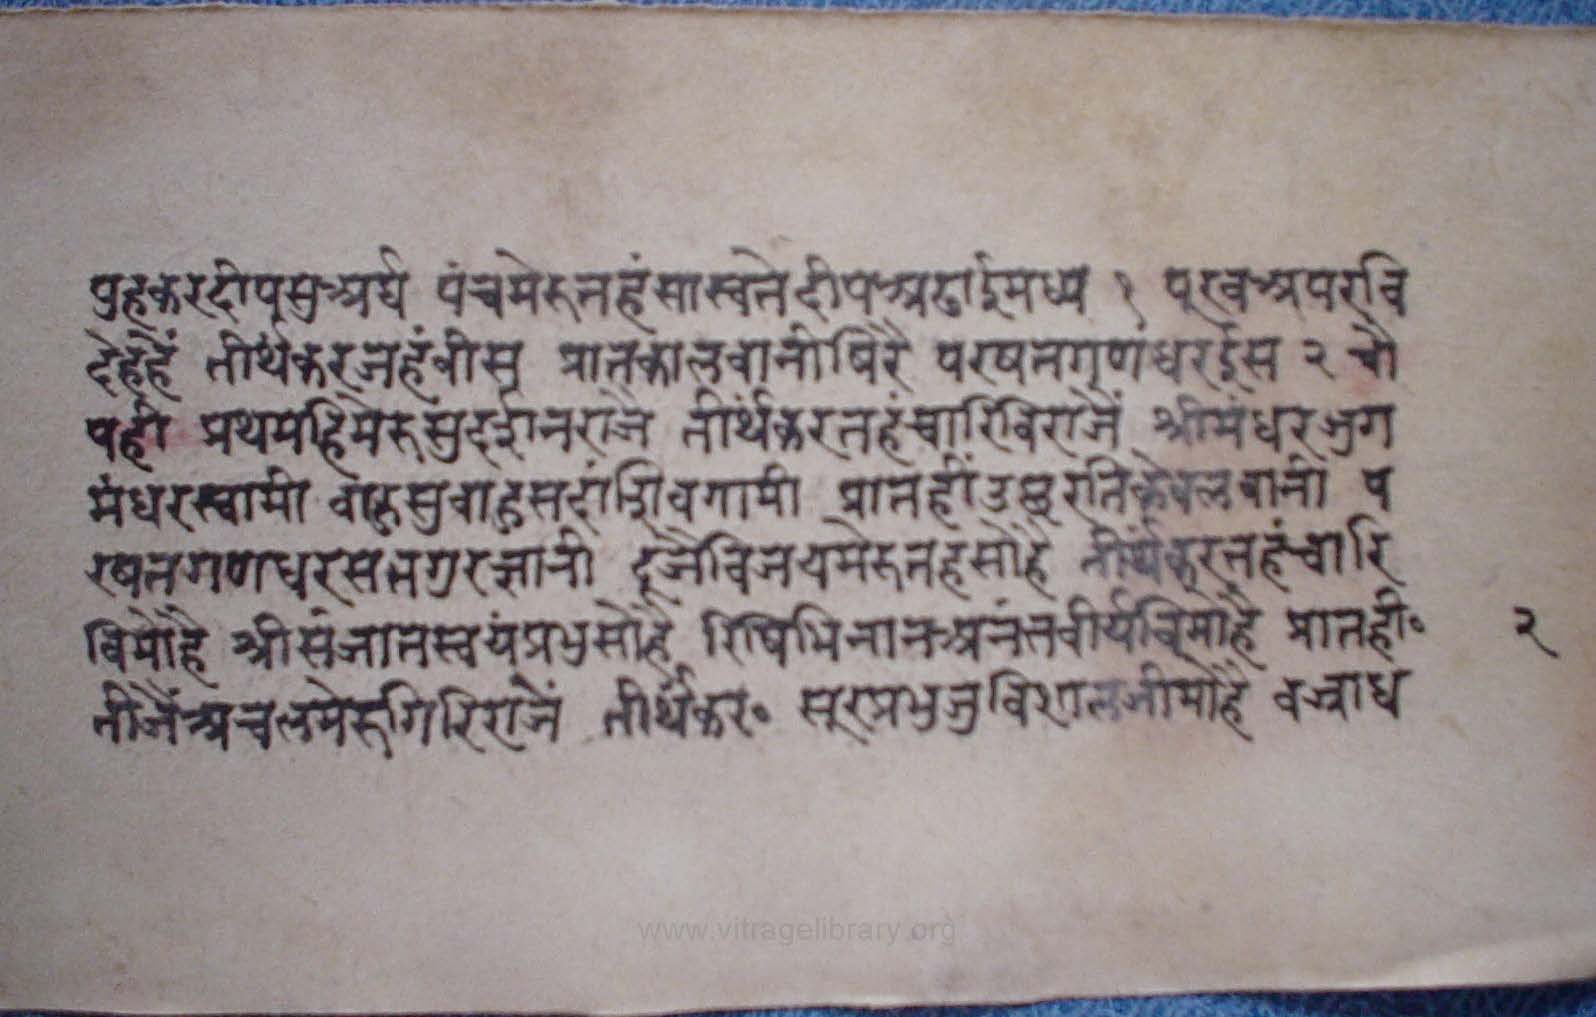 पुहकरदीपसुअर्घ पंचमेरुतहंसास्वते दीपअढाईमध्य १ पूरवअपरवि
देहहैं तीर्थंकरजहंवीस प्रातकालवानीषिरै परषतगणधरईस २ चौ
पही प्रथमहिमेरुसुदर्शनराजै तीर्थंकरतहंचारिविराजैं श्रीमंधरजुग
मंधरस्वामी वाहुसुवाहुसदांशिवगामी प्रातहीं केवलवानी प
रषतगणधरसतगुरज्ञानी दूजैविजयमेरुतहसोहै तीर्थंकरतहंचारि
विमोहै श्रीसंजातस्वयंप्रभुसोहै रिषिभिनानअनंतवीर्यविमोहै प्रातही॰ २
तीजैंअचलमेरुगिरिराजैं तीर्थंकर॰ सूरप्रभुजुविशालजीमोहै वज्राध
www.vitragelibrary.org